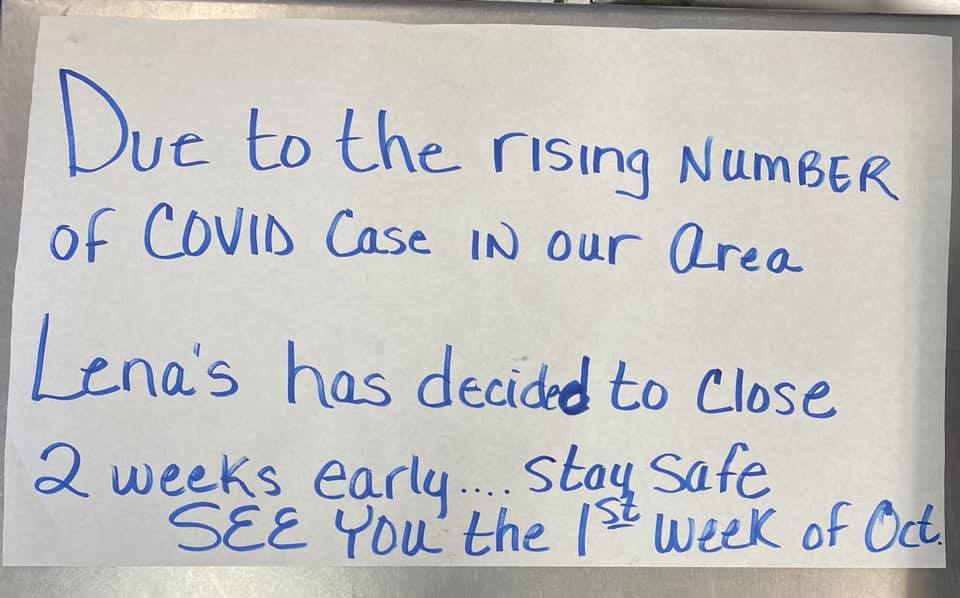 Due to the rising NUMBER
of COVID Case IN our area
Lena's has decided to Close
2 weeks early.... stay safe
SEE YOU the 1st week of Oct.